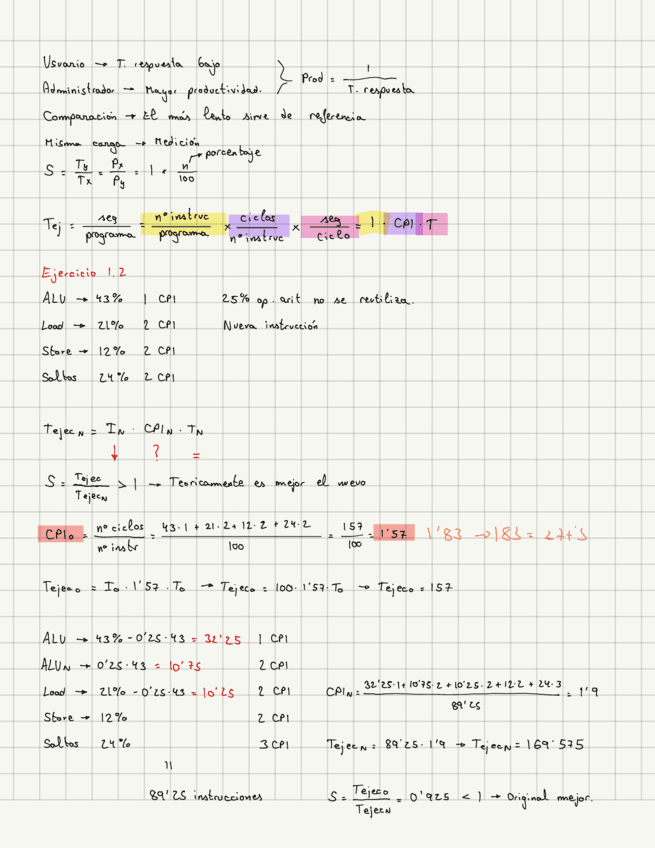 Usuario → T. respuesta bajo
Administrador → Mayor productividad. } Prod = 1 / T. respuesta
Comparación → El más lento sirve de referencia
Misma carga → Medición
S = Ty/Tx = Px/Py = 1 + n/100 → porcentaje
Tej = seg/programa = nº instruc/programa x ciclos/nº instruc x seg/ciclo = I · CPI · T
Ejercicio 1.2
ALU → 43% 1 CPI 25% op. arit no se reutiliza.
Load → 21% 2 CPI Nueva instrucción
Store → 12% 2 CPI
Saltos 24% 2 CPI
TejecN = IN · CPIN · TN
↓ ? =
S = Tejec/TejecN > 1 → Teoricamente es mejor el nuevo
CPIo = nº ciclos/nº instr = 43·1 + 21·2 + 12·2 + 24·2 / 100 = 157/100 = 1'57 1'83 → 183 = 27+3
Tejeco = Io · 1'57 · To → Tejeco = 100 · 1'57 · To → Tejeco = 157
ALU → 43% - 0'25·43 = 32'25 1 CPI
ALUN → 0'25·43 = 10'75 2 CPI
Load → 21% - 0'25·43 = 10'25 2 CPI CPIN = 32'25·1 + 10'75·2 + 10'25·2 + 12·2 + 24·3 / 89'25 = 1'9
Store → 12% 2 CPI
Saltos 24% 3 CPI TejecN = 89'25·1'9 → TejecN = 169'575
=
89'25 instrucciones S = Tejeco/TejecN = 0'925 < 1 → Original mejor.